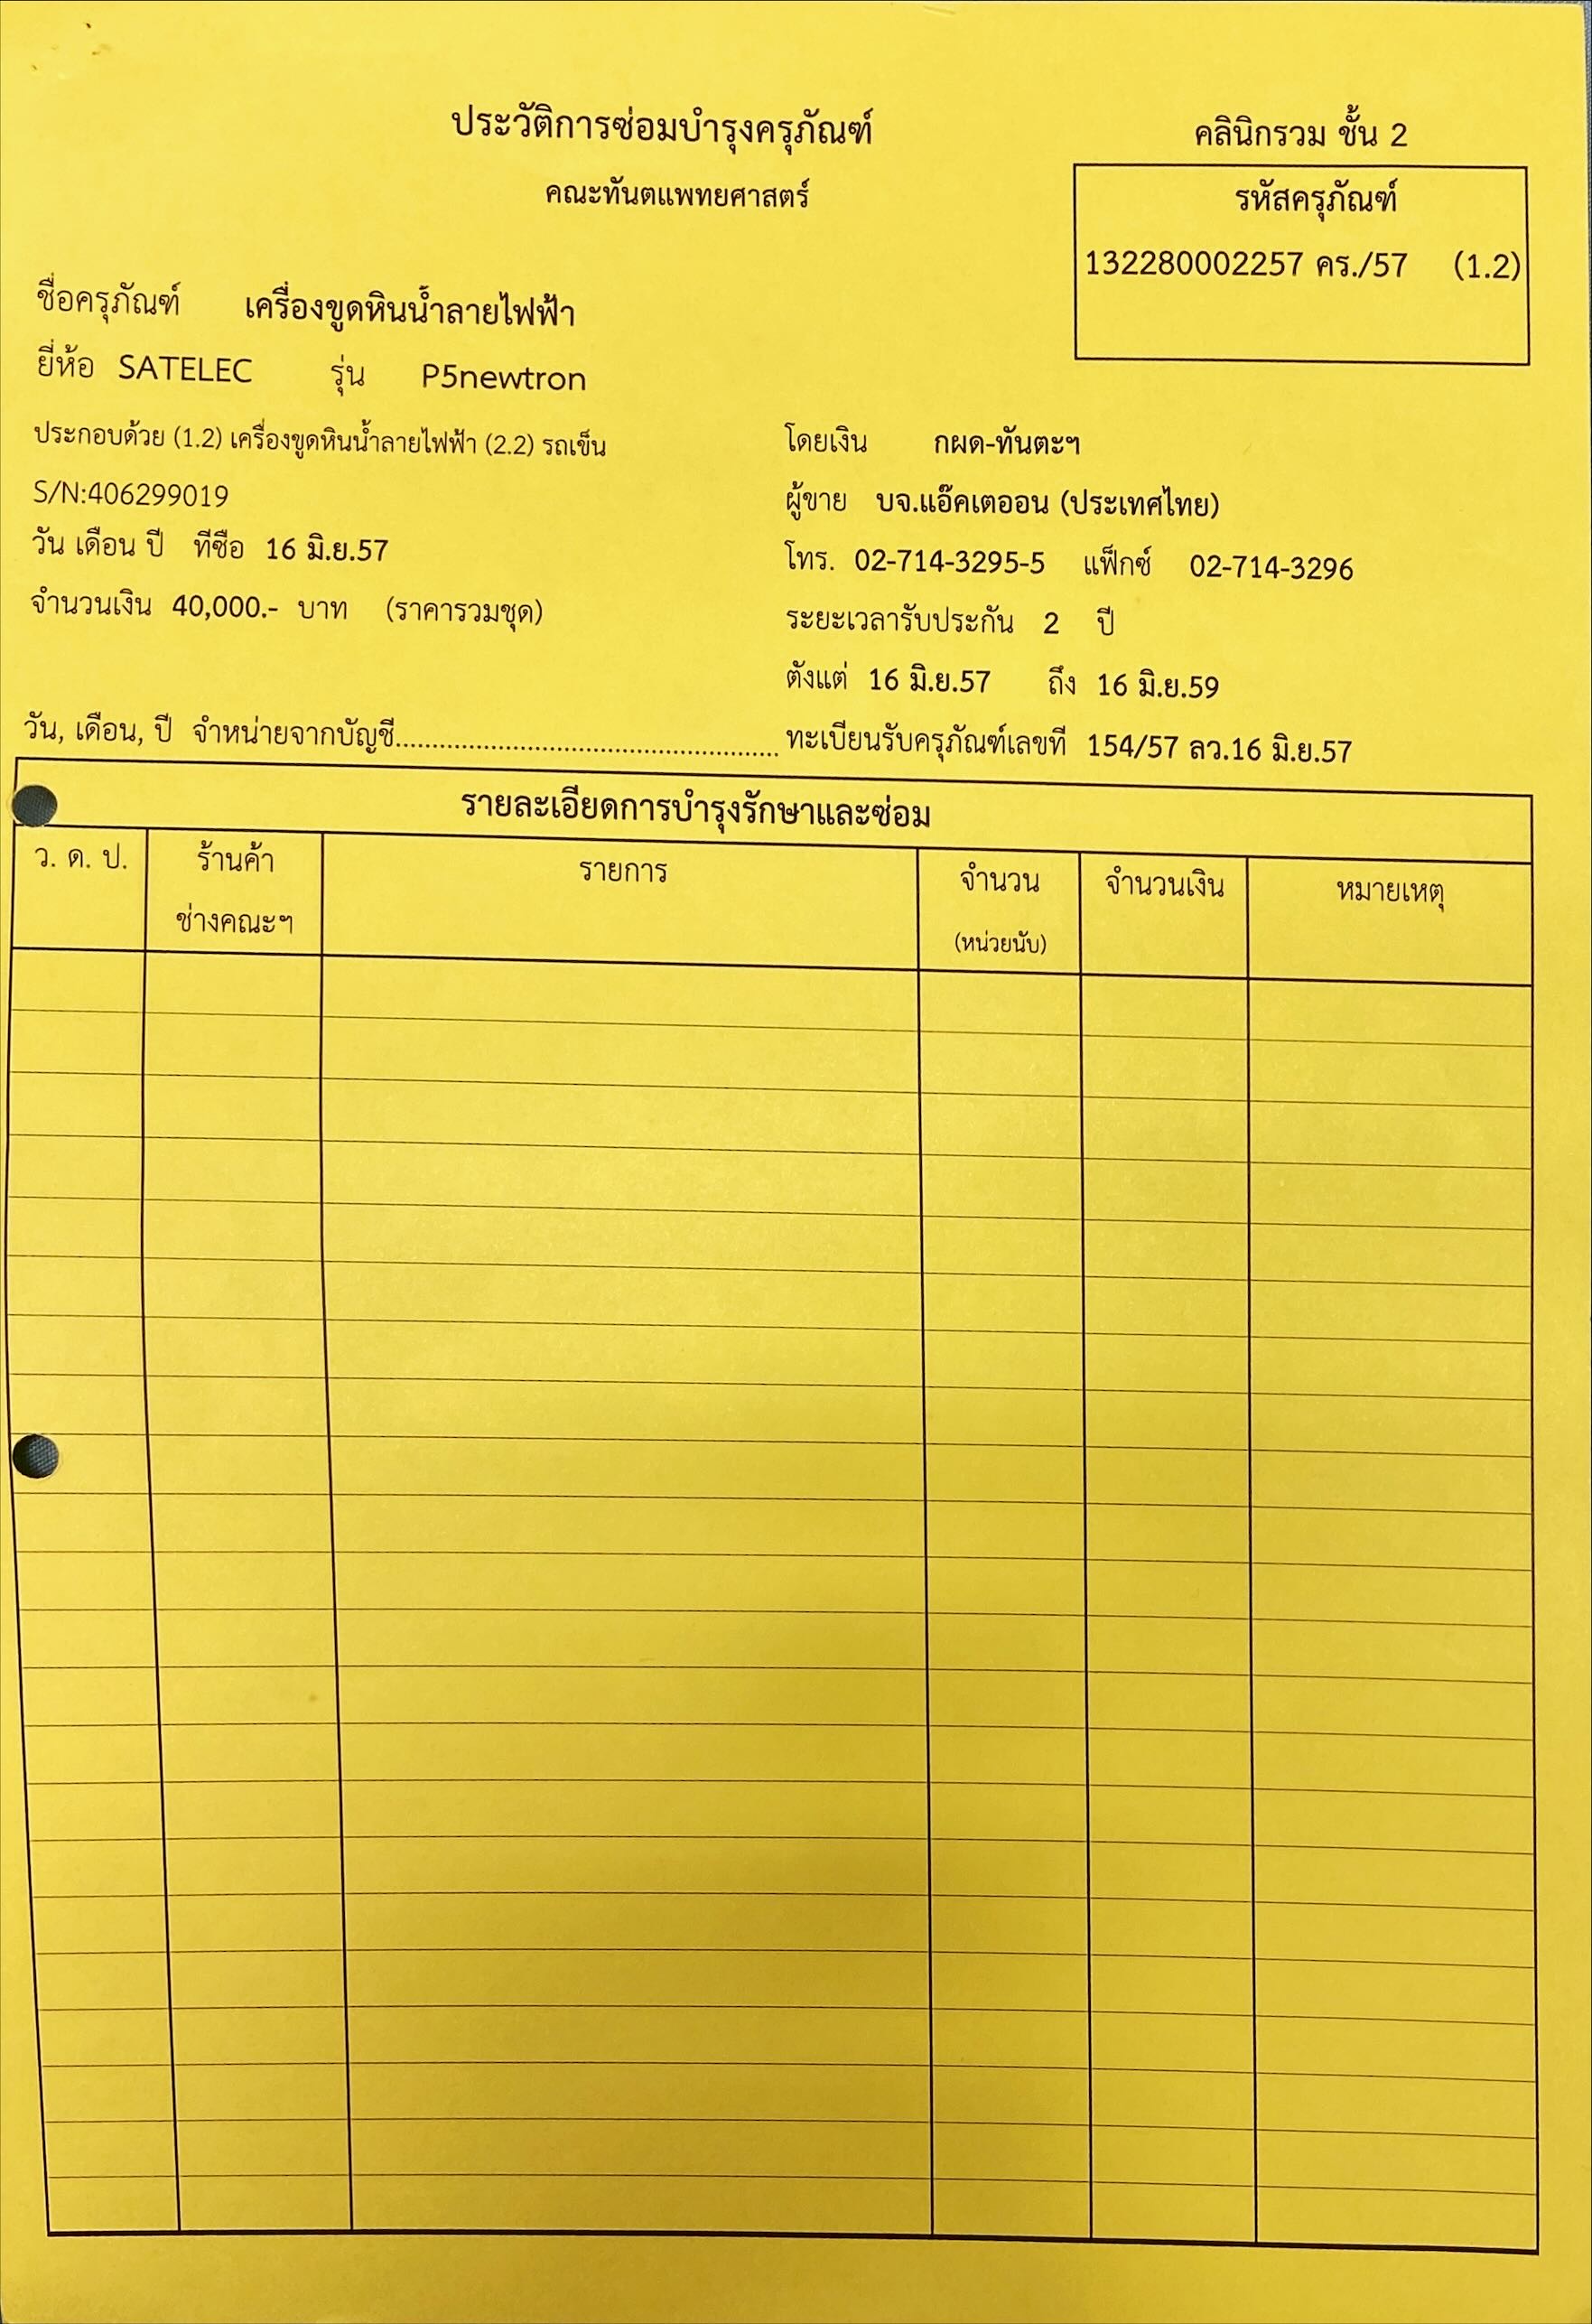 ประวัติการซ่อมบำรุงครุภัณฑ์
คลินิกรวม ชั้น 2
คณะทันตแพทยศาสตร์
รหัสครุภัณฑ์
132280002257 คร./57 (1.2)
ชื่อครุภัณฑ์ เครื่องขูดหินน้ำลายไฟฟ้า
ยี่ห้อ SATELEC รุ่น P5newtron
ประกอบด้วย (1.2) เครื่องขูดหินน้ำลายไฟฟ้า (2.2) รถเข็น
โดยเงิน กผด-ทันตะฯ
S/N:406299019
ผู้ขาย บจ.แอ๊คเตออน (ประเทศไทย)
วัน เดือน ปี ที่ซื้อ 16 มิ.ย.57
โทร. 02-714-3295-5 แฟ็กซ์ 02-714-3296
จำนวนเงิน 40,000.- บาท (ราคารวมชุด)
ระยะเวลารับประกัน 2 ปี
ตั้งแต่ 16 มิ.ย.57 ถึง 16 มิ.ย.59
วัน, เดือน, ปี จำหน่ายจากบัญชี.................................................... ทะเบียนรับครุภัณฑ์เลขที่ 154/57 ลว.16 มิ.ย.57
รายละเอียดการบำรุงรักษาและซ่อม
ว. ด. ป. ร้านค้า รายการ จำนวน จำนวนเงิน หมายเหตุ
ช่างคณะฯ (หน่วยนับ)